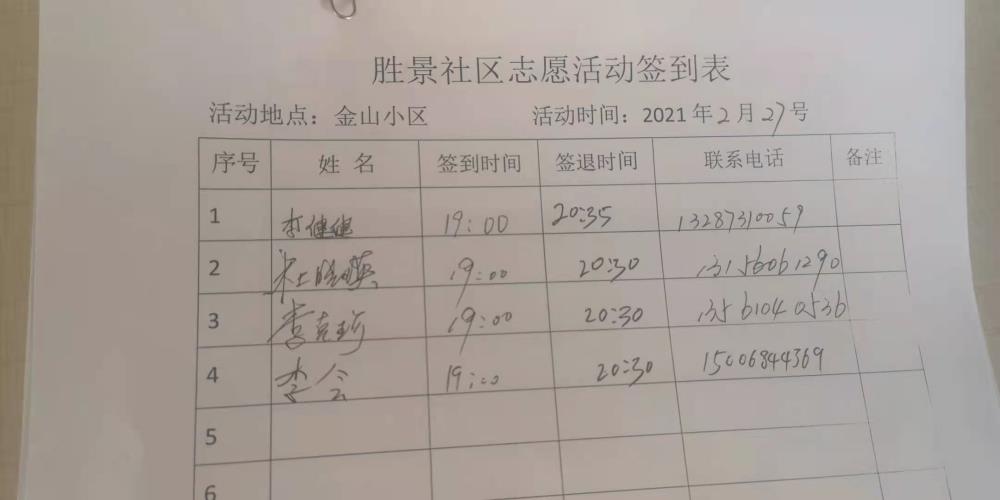 胜景社区志愿活动签到表
活动地点：金山小区 活动时间：2021年2月27号
序号 姓名 签到时间 签退时间 联系电话 备注
1 李健健 19:00 20:35 13287310059
2 杜晓英 19:00 20:30 13156061290
3 李克珍 19:00 20:30 13561040536
4 李会 19:00 20:30 15006844369
5
6